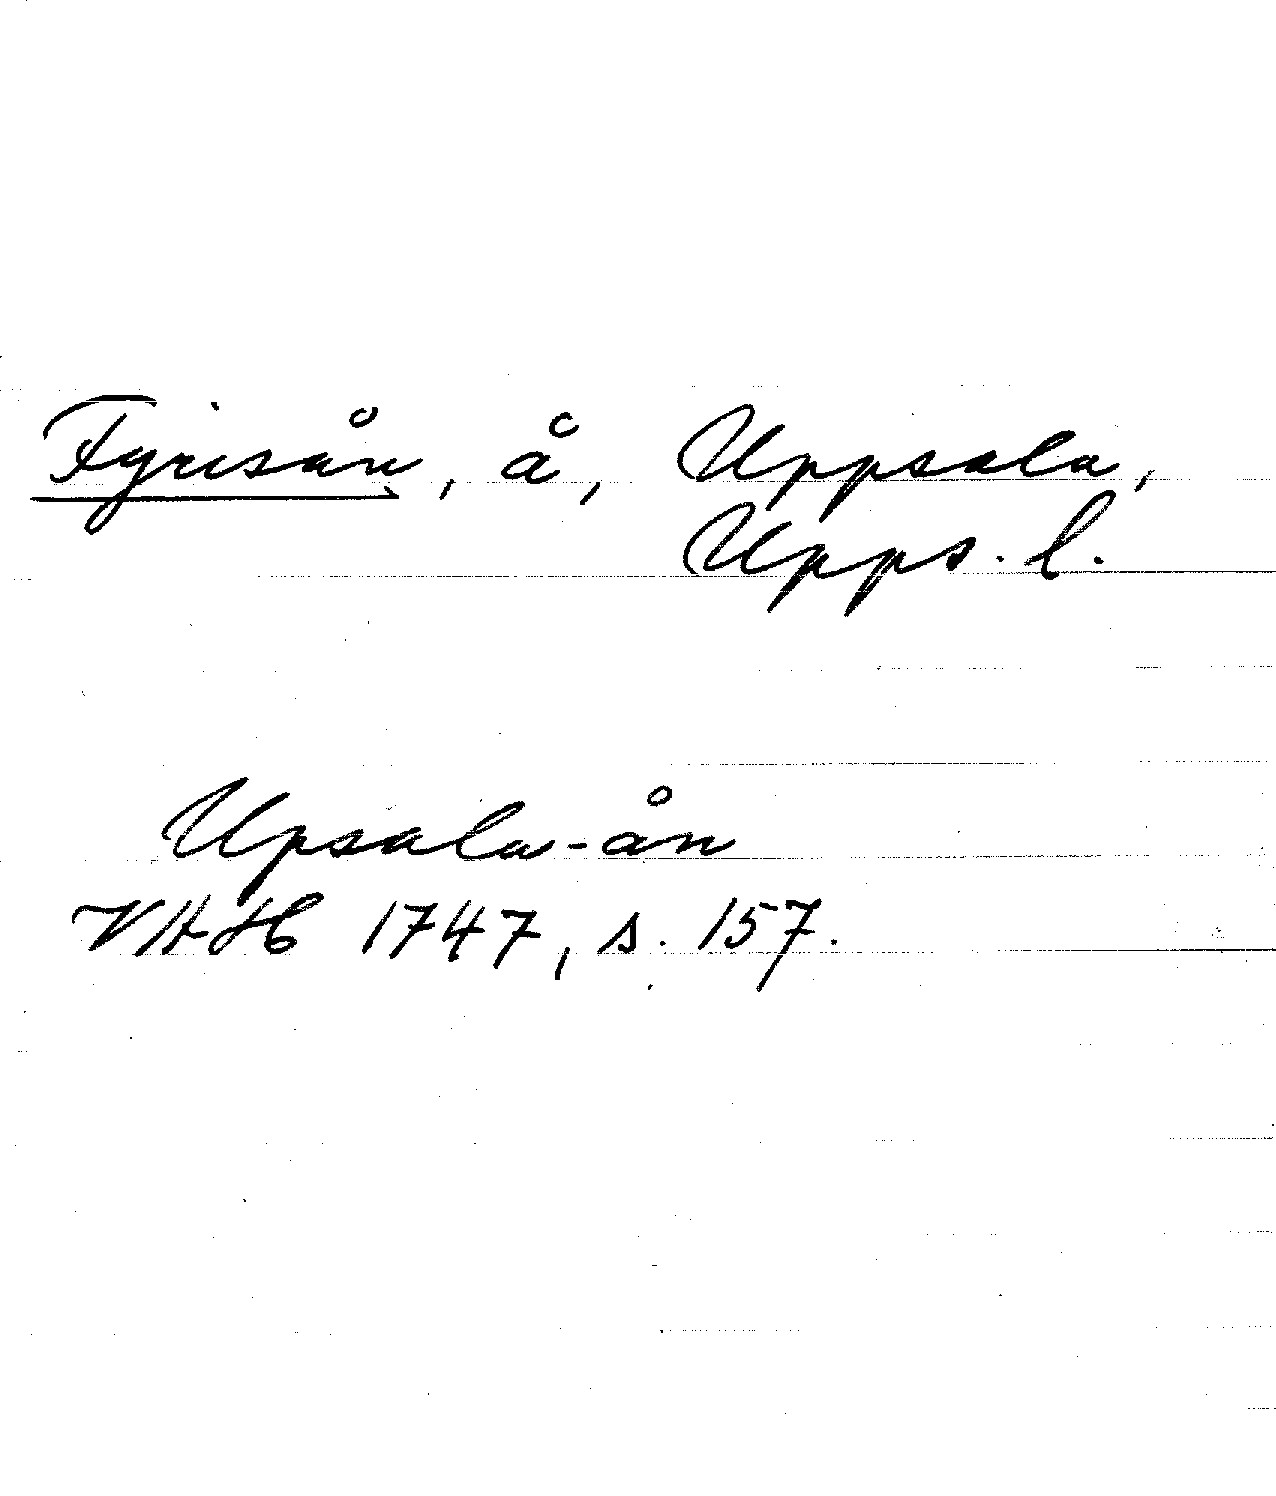 Fyrisån, å, Uppsala,
Upps. l.
Upsala-ån
VAH 1747, s. 157.